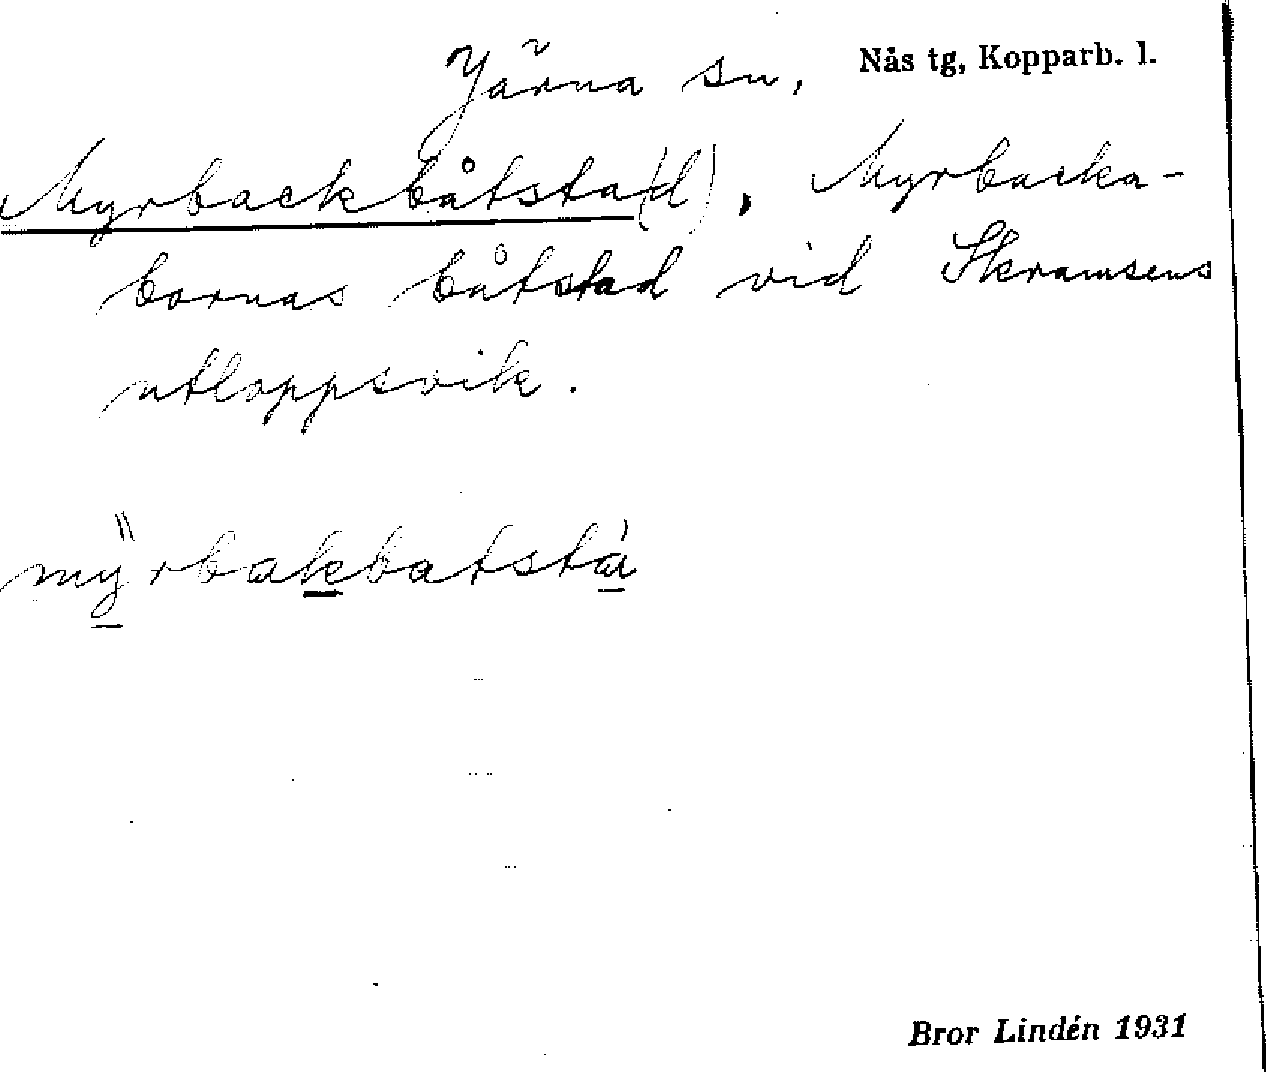 Järna sn, Nås tg, Kopparb. l.
Myrbackbåtsta(d), Myrbacka-
bornas båtstad vid Skramsens
utloppsvik.
my̋rbakbatstà
Bror Lindén 1931